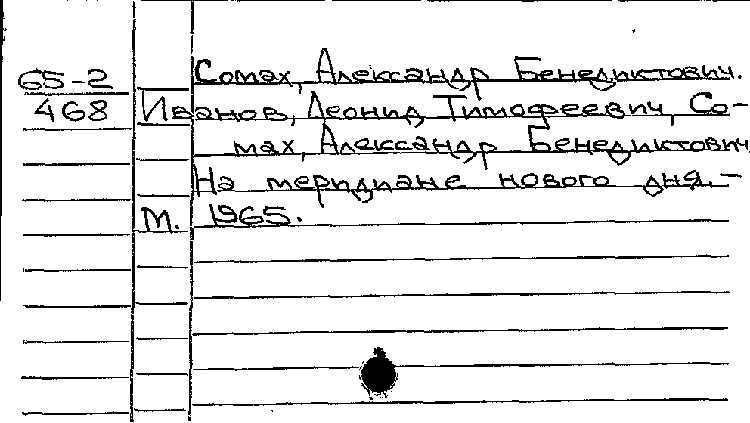 65-2 Сомах, Александр Бенедиктович.
468 Иванов, Леонид Тимофеевич, Со-
мах, Александр Бенедиктович
На меридиане нового дня. –
М. 1965.